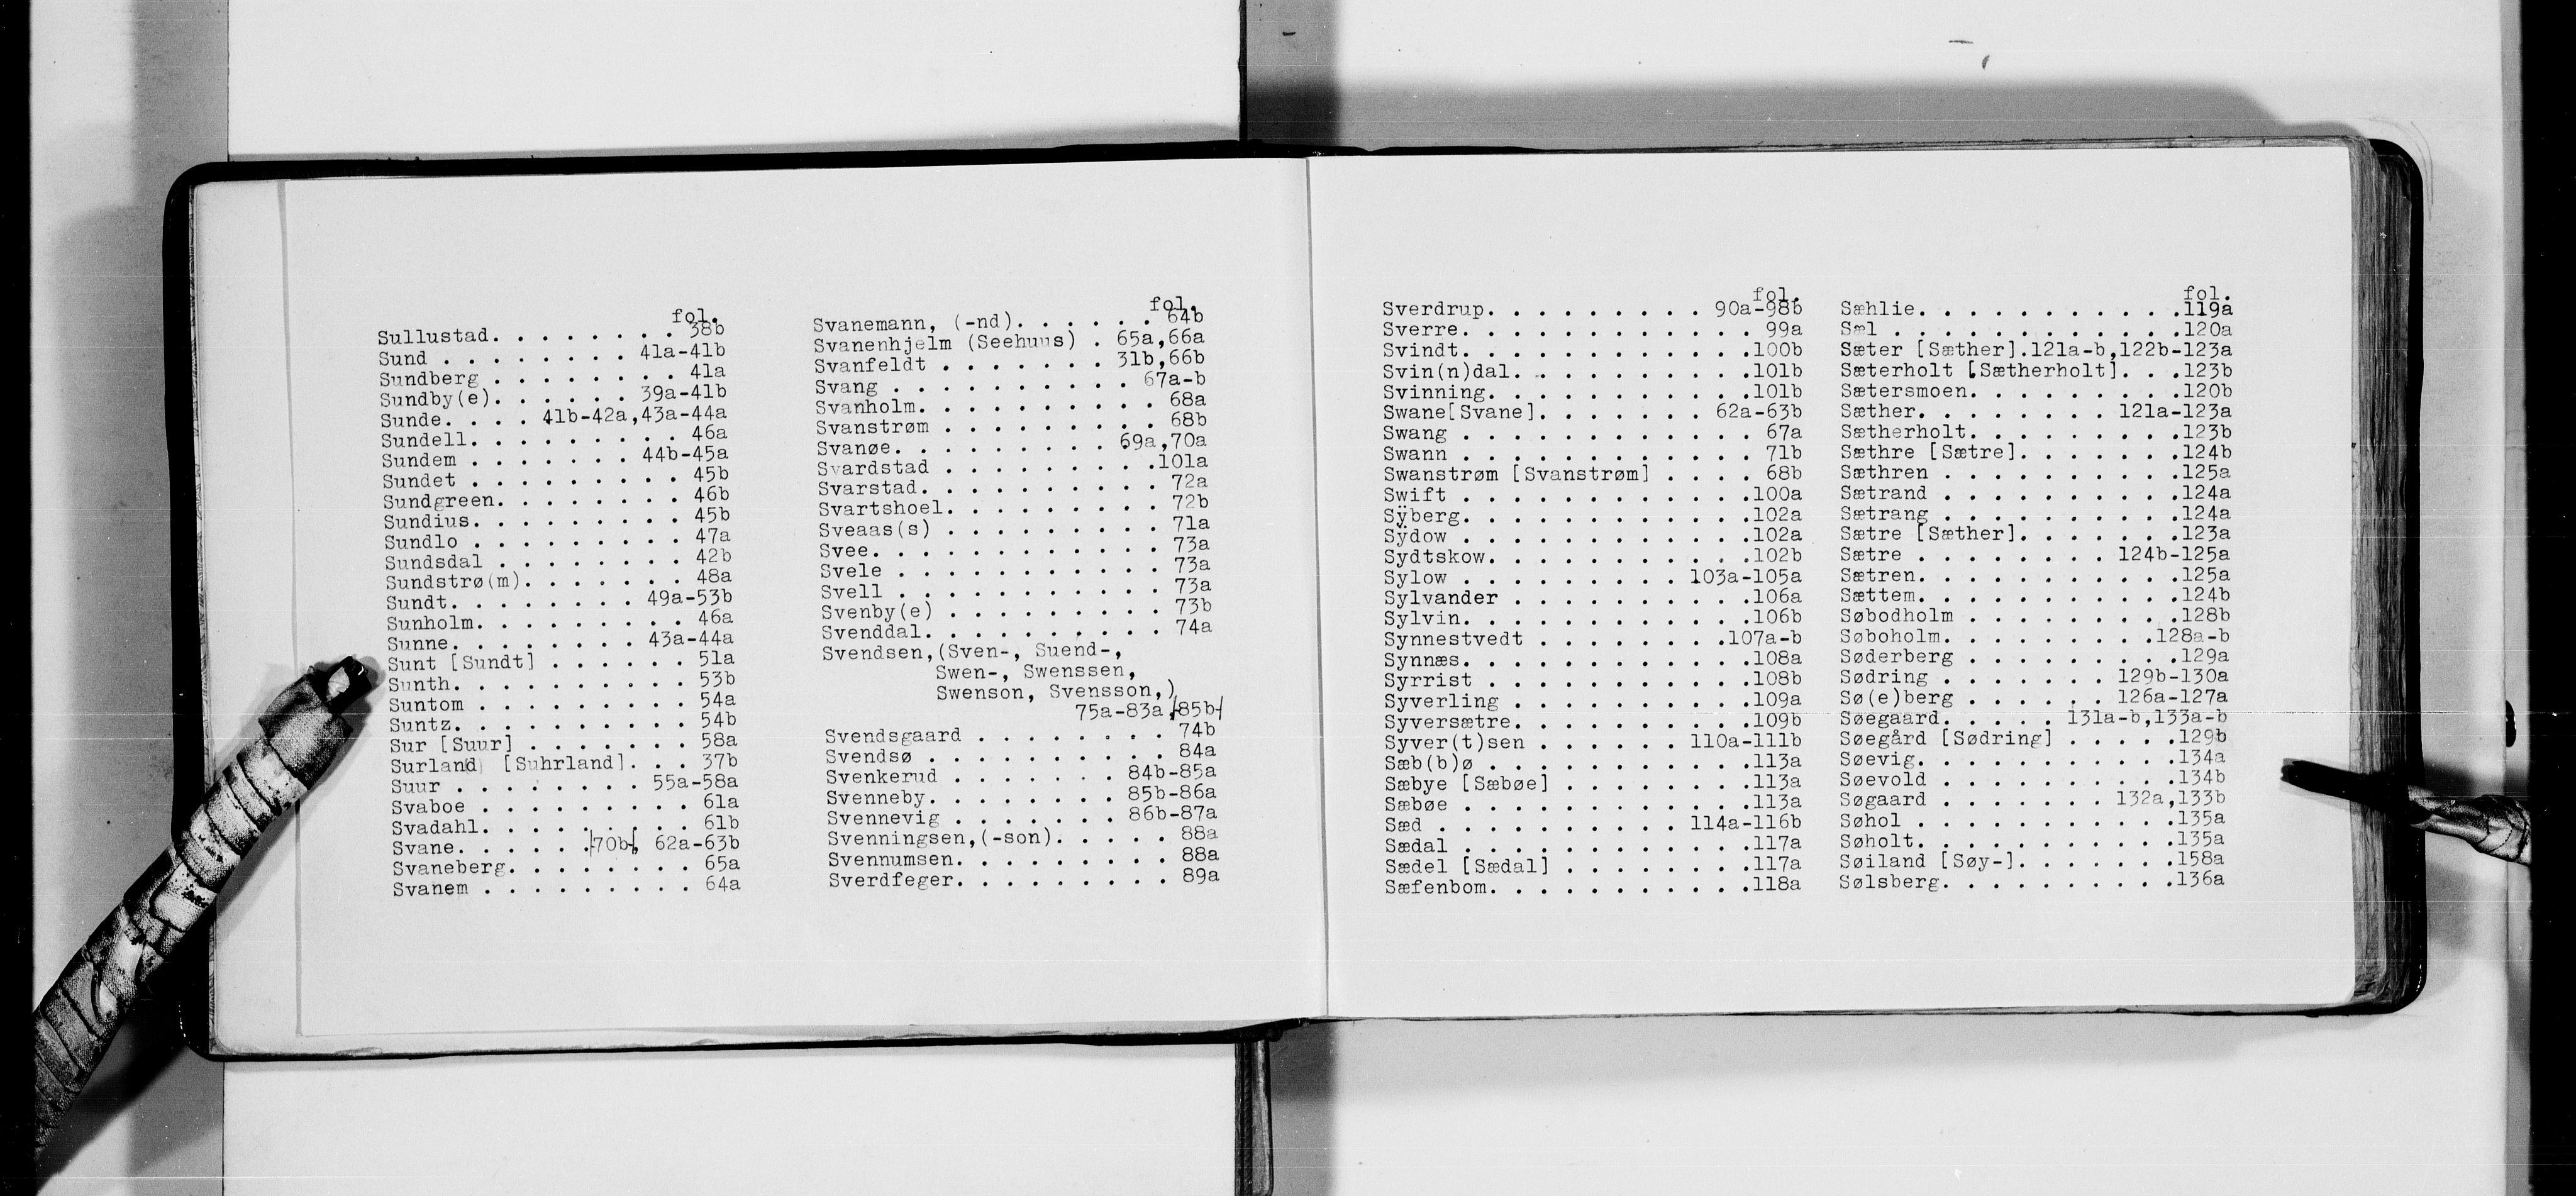 fol.
Sullustad. . . . . . . . 38b
Sund . . . . . . . . 41a-41b
Sundberg . . . . . . . . 41a
Sundby(e). . . . . . 39a-41b
Sunde. . . . 41b-42a,43a-44a
Sundell. . . . . . . . . 46a
Sundem . . . . . . . 44b-45a
Sundet . . . . . . . . . 45b
Sundgreen. . . . . . . . 46b
Sundius. . . . . . . . . 45b
Sundlo . . . . . . . . . 47a
Sundsdal . . . . . . . . 42b
Sundstrø(m). . . . . . . 48a
Sundt. . . . . . . . 49a-53b
Sunholm. . . . . . . . . 46a
Sunne. . . . . . . . 43a-44a
Sunt [Sundt] . . . . . . 51a
Sunth. . . . . . . . . . 53b
Suntom . . . . . . . . . 54a
Suntz. . . . . . . . . . 54b
Sur [Suur] . . . . . . . 58a
Surland) [Suhrland]. . . 37b
Suur . . . . . . . . 55a-58a
Svaboe . . . . . . . . . 61a
Svadahl. . . . . . . . . 61b
Svane. . . . . . [70b], 62a-63b
Svaneberg. . . . . . . . 65a
Svanem . . . . . . . . . 64a
fol.
Svanemann, (-nd). . . . . . 64b
Svanenhjelm (Seehuus) . 65a,66a
Svanfeldt . . . . . . . 31b,66b
Svang . . . . . . . . . . 67a-b
Svanholm. . . . . . . . . . 68a
Svanstrøm . . . . . . . . . 68b
Svanøe. . . . . . . . . 69a,70a
Svardstad . . . . . . . . .101a
Svarstad. . . . . . . . . . 72a
Svartshoel. . . . . . . . . 72b
Sveaas(s) . . . . . . . . . 71a
Svee. . . . . . . . . . . . 73a
Svele . . . . . . . . . . . 73a
Svell . . . . . . . . . . . 73a
Svenby(e) . . . . . . . . . 73b
Svenddal. . . . . . . . . . 74a
Svendsen,(Sven-, Suend-,
Swen-, Swenssen,
Swenson, Svensson,)
75a-83a,[85b]
Svendsgaard . . . . . . . . 74b
Svendsø . . . . . . . . . . 84a
Svenkerud . . . . . . . 84b-85a
Svenneby. . . . . . . . 85b-86a
Svennevig . . . . . . . 86b-87a
Svenningsen,(-son). . . . . 88a
Svennumsen. . . . . . . . . 88a
Sverdfeger. . . . . . . . . 89a
fol.
Sverdrup. . . . . . . . . 90a-98b
Sverre. . . . . . . . . . . . 99a
Svindt. . . . . . . . . . . .100b
Svin(n)dal. . . . . . . . . .101b
Svinning. . . . . . . . . . .101b
Swane[Svane]. . . . . . . 62a-63b
Swang . . . . . . . . . . . . 67a
Swann . . . . . . . . . . . . 71b
Swanstrøm [Svanstrøm] . . . . 68b
Swift . . . . . . . . . . . .100a
Sÿberg. . . . . . . . . . . .102a
Sÿdow . . . . . . . . . . . .102a
Sydtskow. . . . . . . . . . .102b
Sylow . . . . . . . . . 103a-105a
Sylvander . . . . . . . . . .106a
Sylvin. . . . . . . . . . . .106b
Synnestvedt . . . . . . . .107a-b
Synnæs. . . . . . . . . . . .108a
Syrrist . . . . . . . . . . .108b
Syverling . . . . . . . . . .109a
Syversætre. . . . . . . . . .109b
Syver(t)sen . . . . . . 110a-111b
Sæb(b)ø . . . . . . . . . . .113a
Sæbye [Sæbøe] . . . . . . . .113a
Sæbøe . . . . . . . . . . . .113a
Sæd . . . . . . . . . . 114a-116b
Sædal . . . . . . . . . . . .117a
Sædel [Sædal] . . . . . . . .117a
Sæfenbom. . . . . . . . . . .118a
fol.
Sæhlie. . . . . . . . . . .119a
Sæl . . . . . . . . . . . .120a
Sæter [Sæther].121a-b,122b-123a
Sæterholt [Sætherholt]. . .123b
Sætersmoen. . . . . . . . .120b
Sæther. . . . . . . . 121a-123a
Sætherholt. . . . . . . . .123b
Sæthre [Sætre]. . . . . . .124b
Sæthren . . . . . . . . . .125a
Sætrand . . . . . . . . . .124a
Sætrang . . . . . . . . . .124a
Sætre [Sæther]. . . . . . .123a
Sætre . . . . . . . . 124b-125a
Sætren. . . . . . . . . . .125a
Sættem. . . . . . . . . . .124b
Søbodholm . . . . . . . . .128b
Søboholm. . . . . . . . .128a-b
Søderberg . . . . . . . . .129a
Sødring . . . . . . . 129b-130a
Sø(e)berg . . . . . . 126a-127a
Søegaard. . . . . 131a-b,133a-b
Søegård [Sødring] . . . . .129b
Søevig. . . . . . . . . . .134a
Søevold . . . . . . . . . .134b
Søgaard . . . . . . . 132a,133b
Søhol . . . . . . . . . . .135a
Søholt. . . . . . . . . . .135a
Søiland [Søy-]. . . . . . .158a
Sølsberg. . . . . . . . . .136a